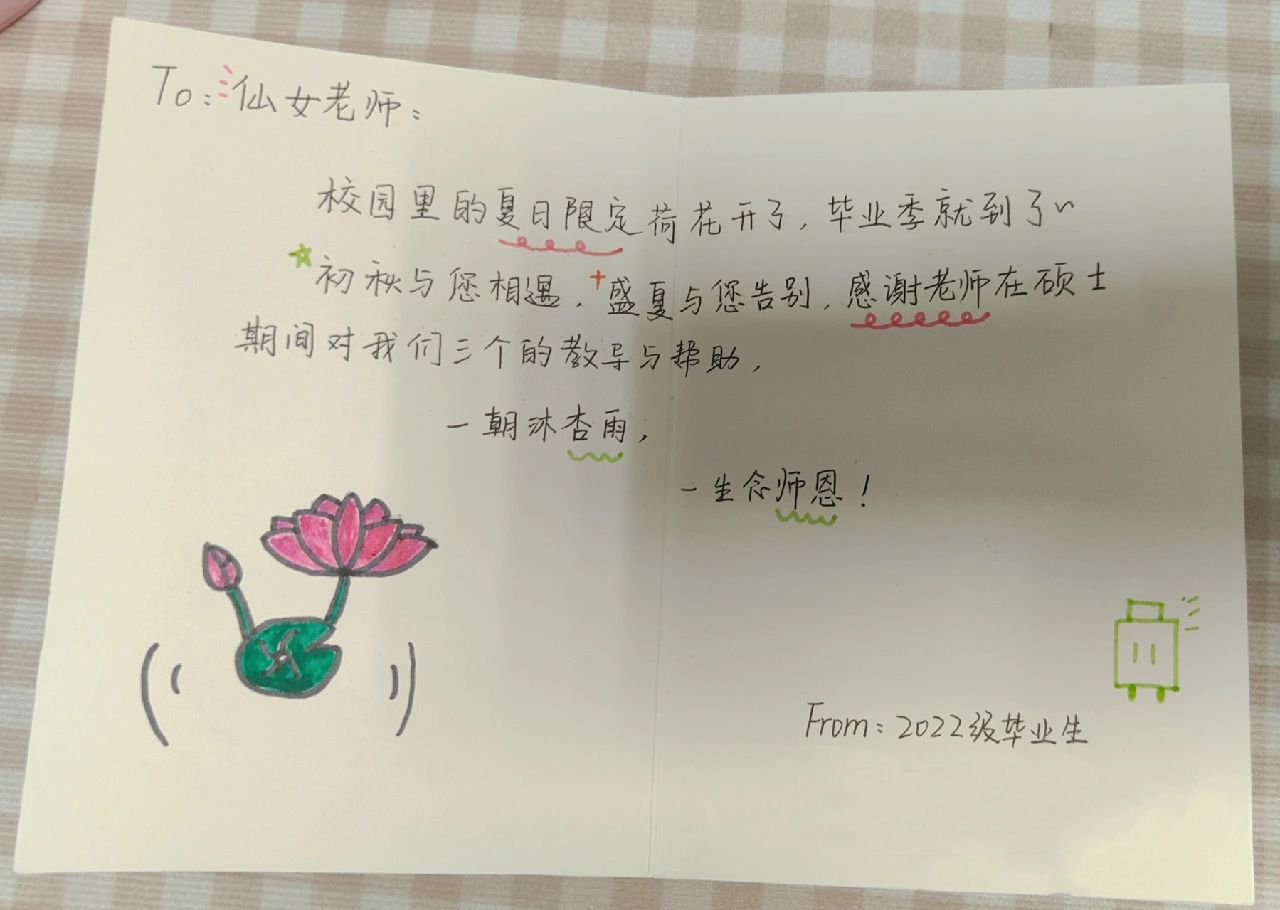 To:仙女老师:
校园里的夏日限定荷花开了,毕业季就到了~
初秋与您相遇,盛夏与您告别,感谢老师在硕士
期间对我们三个的教导与帮助,
一朝沐杏雨,
一生念师恩!
From:2022级毕业生